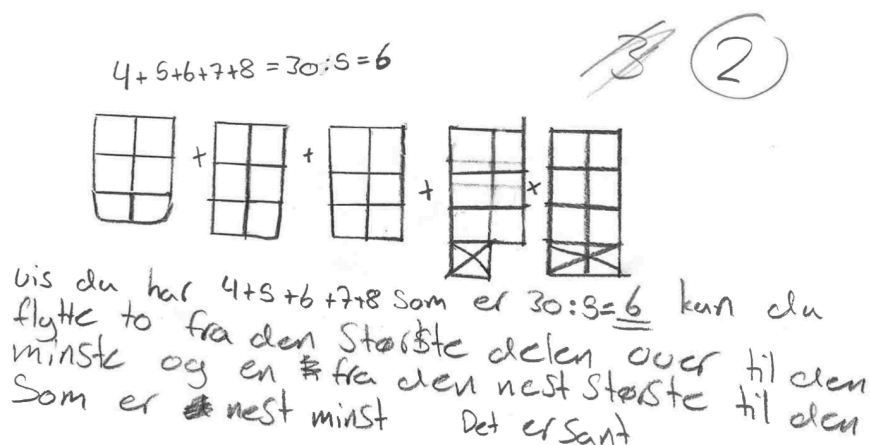 4+5+6+7+8=30:5=6
3 2
+ + + x
vis du har 4+5+6+7+8 som er 30:5=6 kan du
flytte to fra den Største delen over til den
minste og en fra den nest største til den
Som er nest minst Det er sant